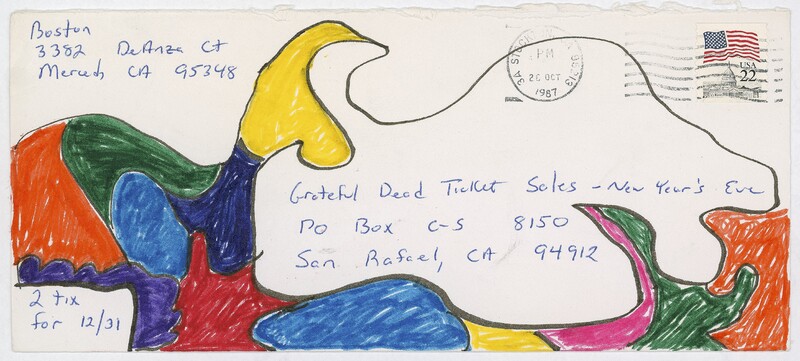 Boston
3382 DeAnza Ct
Merced, CA 95348
PM
26 OCT
1987
USA
22
Grateful Dead Ticket Sales - New Year's Eve
PO Box C-S 8150
San Rafael, CA 94912
2 tix
for 12/31